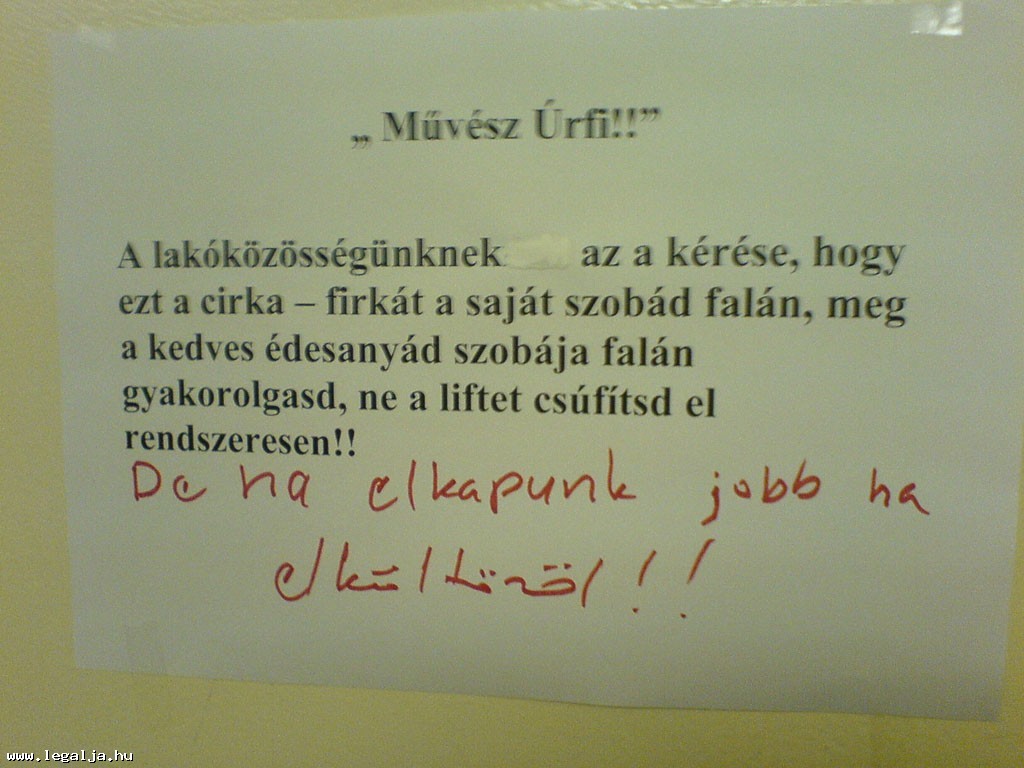 „ Művész Úrfi!!”
A lakóközösségünknek az a kérése, hogy
ezt a cirka – firkát a saját szobád falán, meg
a kedves édesanyád szobája falán
gyakorolgasd, ne a liftet csúfítsd el
rendszeresen!!
De ha elkapunk jobb ha
elköltözöl!!
www.legalja.hu